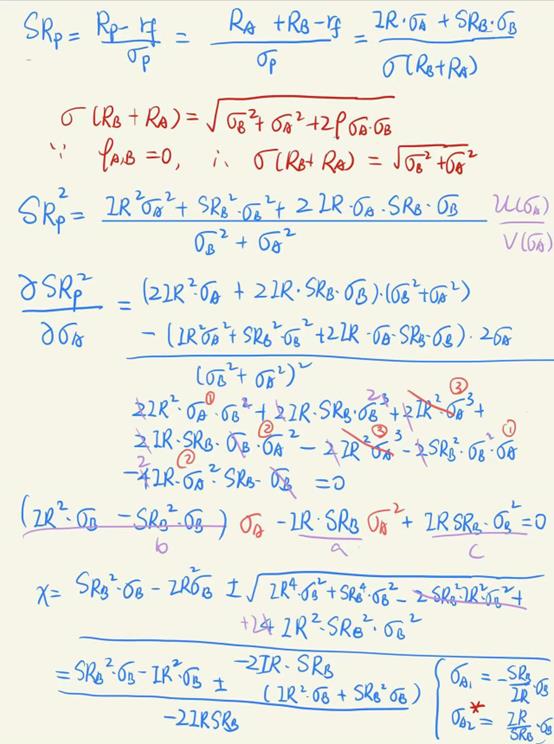 SRp = (Rp - rf)/σp = (RA + RB - rf)/σp = (IR·σA + SRB·σB)/σ(RB+RA)
σ(RB + RA) = √(σB² + σA² + 2ρσA·σB)
∵ ρA,B = 0, ∴ σ(RB + RA) = √(σB² + σA²)
SRp² = (IR²σA² + SRB²·σB² + 2IR·σA·SRB·σB)/(σB² + σA²) U(σA)/V(σA)
∂SRp²/∂σA = (2IR²·σA + 2IR·SRB·σB)·(σB² + σA²)
- (IR²σA² + SRB²·σB² + 2IR·σA·SRB·σB)·2σA
(σB² + σA²)²
2IR²·σA①·σB² + 2IR·SRB·σB³ + 2IR²·σA³③ +
2IR·SRB·σB·σA²② - 2IR²σA³③ - 2SRB²·σB²·σA①
-4IR·σA²②·SRB·σB = 0
(IR²·σB - SRB²·σB) σA - IR·SRB σA² + IR SRB·σB² = 0
b a c
x = SRB²·σB - IR²σB ± √(IR⁴·σB² + SRB⁴·σB² - 2SRB²·IR²·σB² +
+4 IR²·SRB²·σB²)
-2IR·SRB
= SRB²·σB - IR²·σB ± (IR²·σB + SRB²σB)
-2IRSRB
σA1 = -SRB/IR·σB
σA2* = IR/SRB·σB